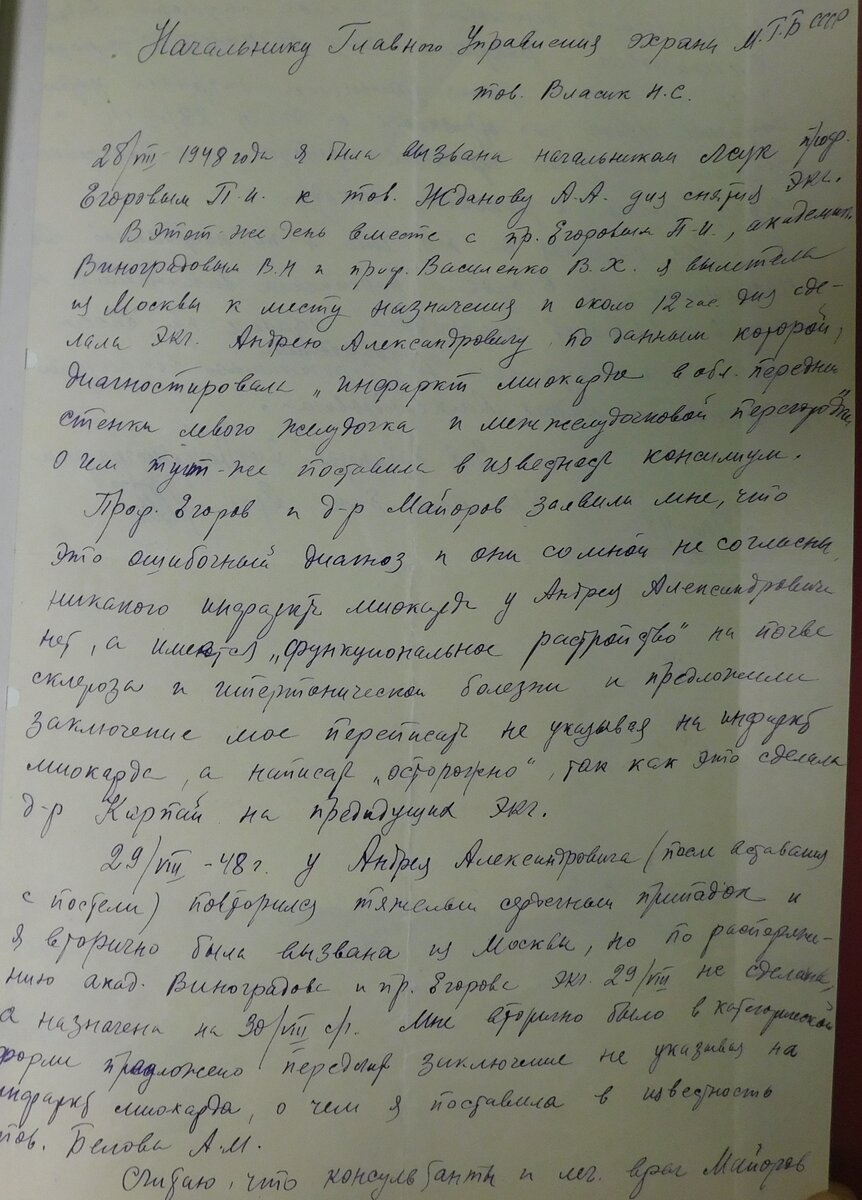 Начальнику Главного Управления охраны М.Г.Б СССР
тов. Власик Н.С.
28/VIII 1948 года я была вызвана начальником Лсук проф.
Егоровым П.И. к тов. Жданову А.А. для снятия ЭКГ.
В этот-же день вместе с пр. Егоровым П.И., академик.
Виноградовым В.Н и проф. Василенко В.Х. я вылетела
из Москвы к месту назначения и около 12 час. дня сде-
лала ЭКГ. Андрею Александровичу, по данным которой,
диагностировала „инфаркт миокарда в обл. передней
стенки левого желудочка и межжелудочковой перегородки"
о чем тут-же поставила в известность консилиум.
Проф. Егоров и д-р Майоров заявили мне, что
это ошибочный диагноз и они со мной не согласны,
никакого инфаркта миокарда у Андрея Александровича
нет, а имеется „функциональное растройство" на почве
склероза и гипертонической болезни и предложили
заключение мое переписать не указывая на инфаркт
миокарда, а написать „осторожно", так как это сделала
д-р Карпай на предидущих ЭКГ.
29/VIII -48 г. у Андрея Александровича (после вставания
с постели) повторился тяжелый сердечный припадок и
я вторично была вызвана из Москвы, но по распоряже-
нию акад. Виноградова и пр. Егорова ЭКГ. 29/VIII не сделана,
а назначена на 30/VIII с/г. Мне вторично было в категорической
форме предложено переделать заключение не указывая на
инфаркт миокарда, о чем я поставила в известность
тов. Белова А.М.
Считаю, что консультанты и леч. врач Майоров